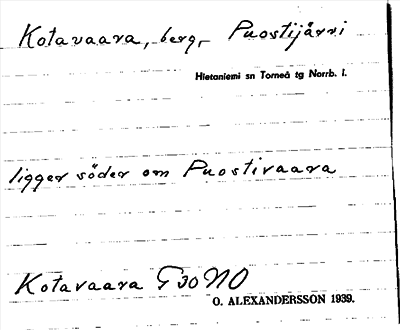 Kotavaara, berg, Puostijärvi
Hietaniemi sn Torneå tg Norrb. l.
ligger söder om Puostivaara
Kotavaara F 30 NO
O. ALEXANDERSSON 1939.